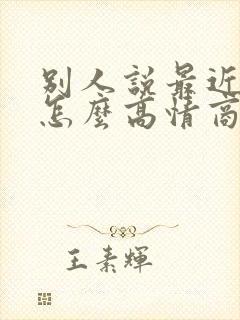 別人說最近
怎麼高情商
王素輝